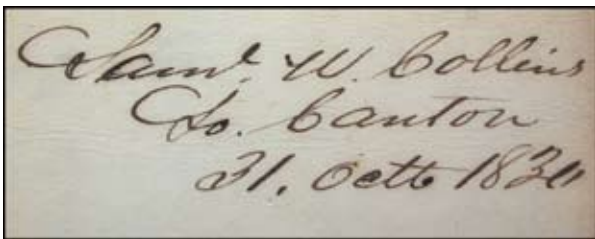 Saml. W. Collins
So. Canton
31. Octo